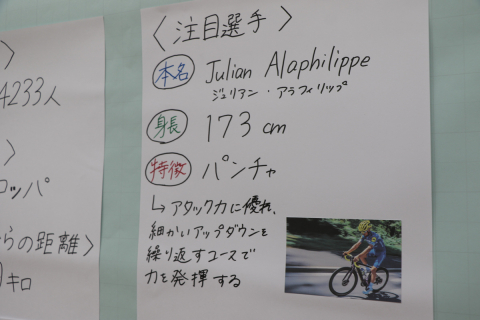 〉
4233人
〉
ロッパ
らの距離〉
キロ
〈注目選手〉
本名 Julian Alaphilippe
ジュリアン・アラフィリップ
身長 173cm
特徴 パンチャ
↳アタック力に優れ、
細かいアップダウンを
繰り返すコースで
力を発揮する